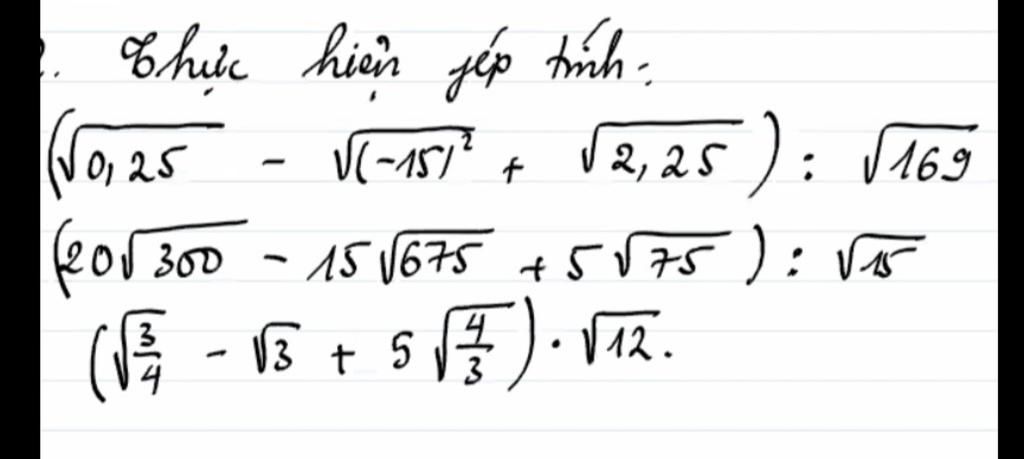 2. Thực hiện phép tính:
(√0,25 - √(-15)² + √2,25) : √169
(20√300 - 15√675 + 5√75) : √15
(√3/4 - √3 + 5√4/3) · √12.